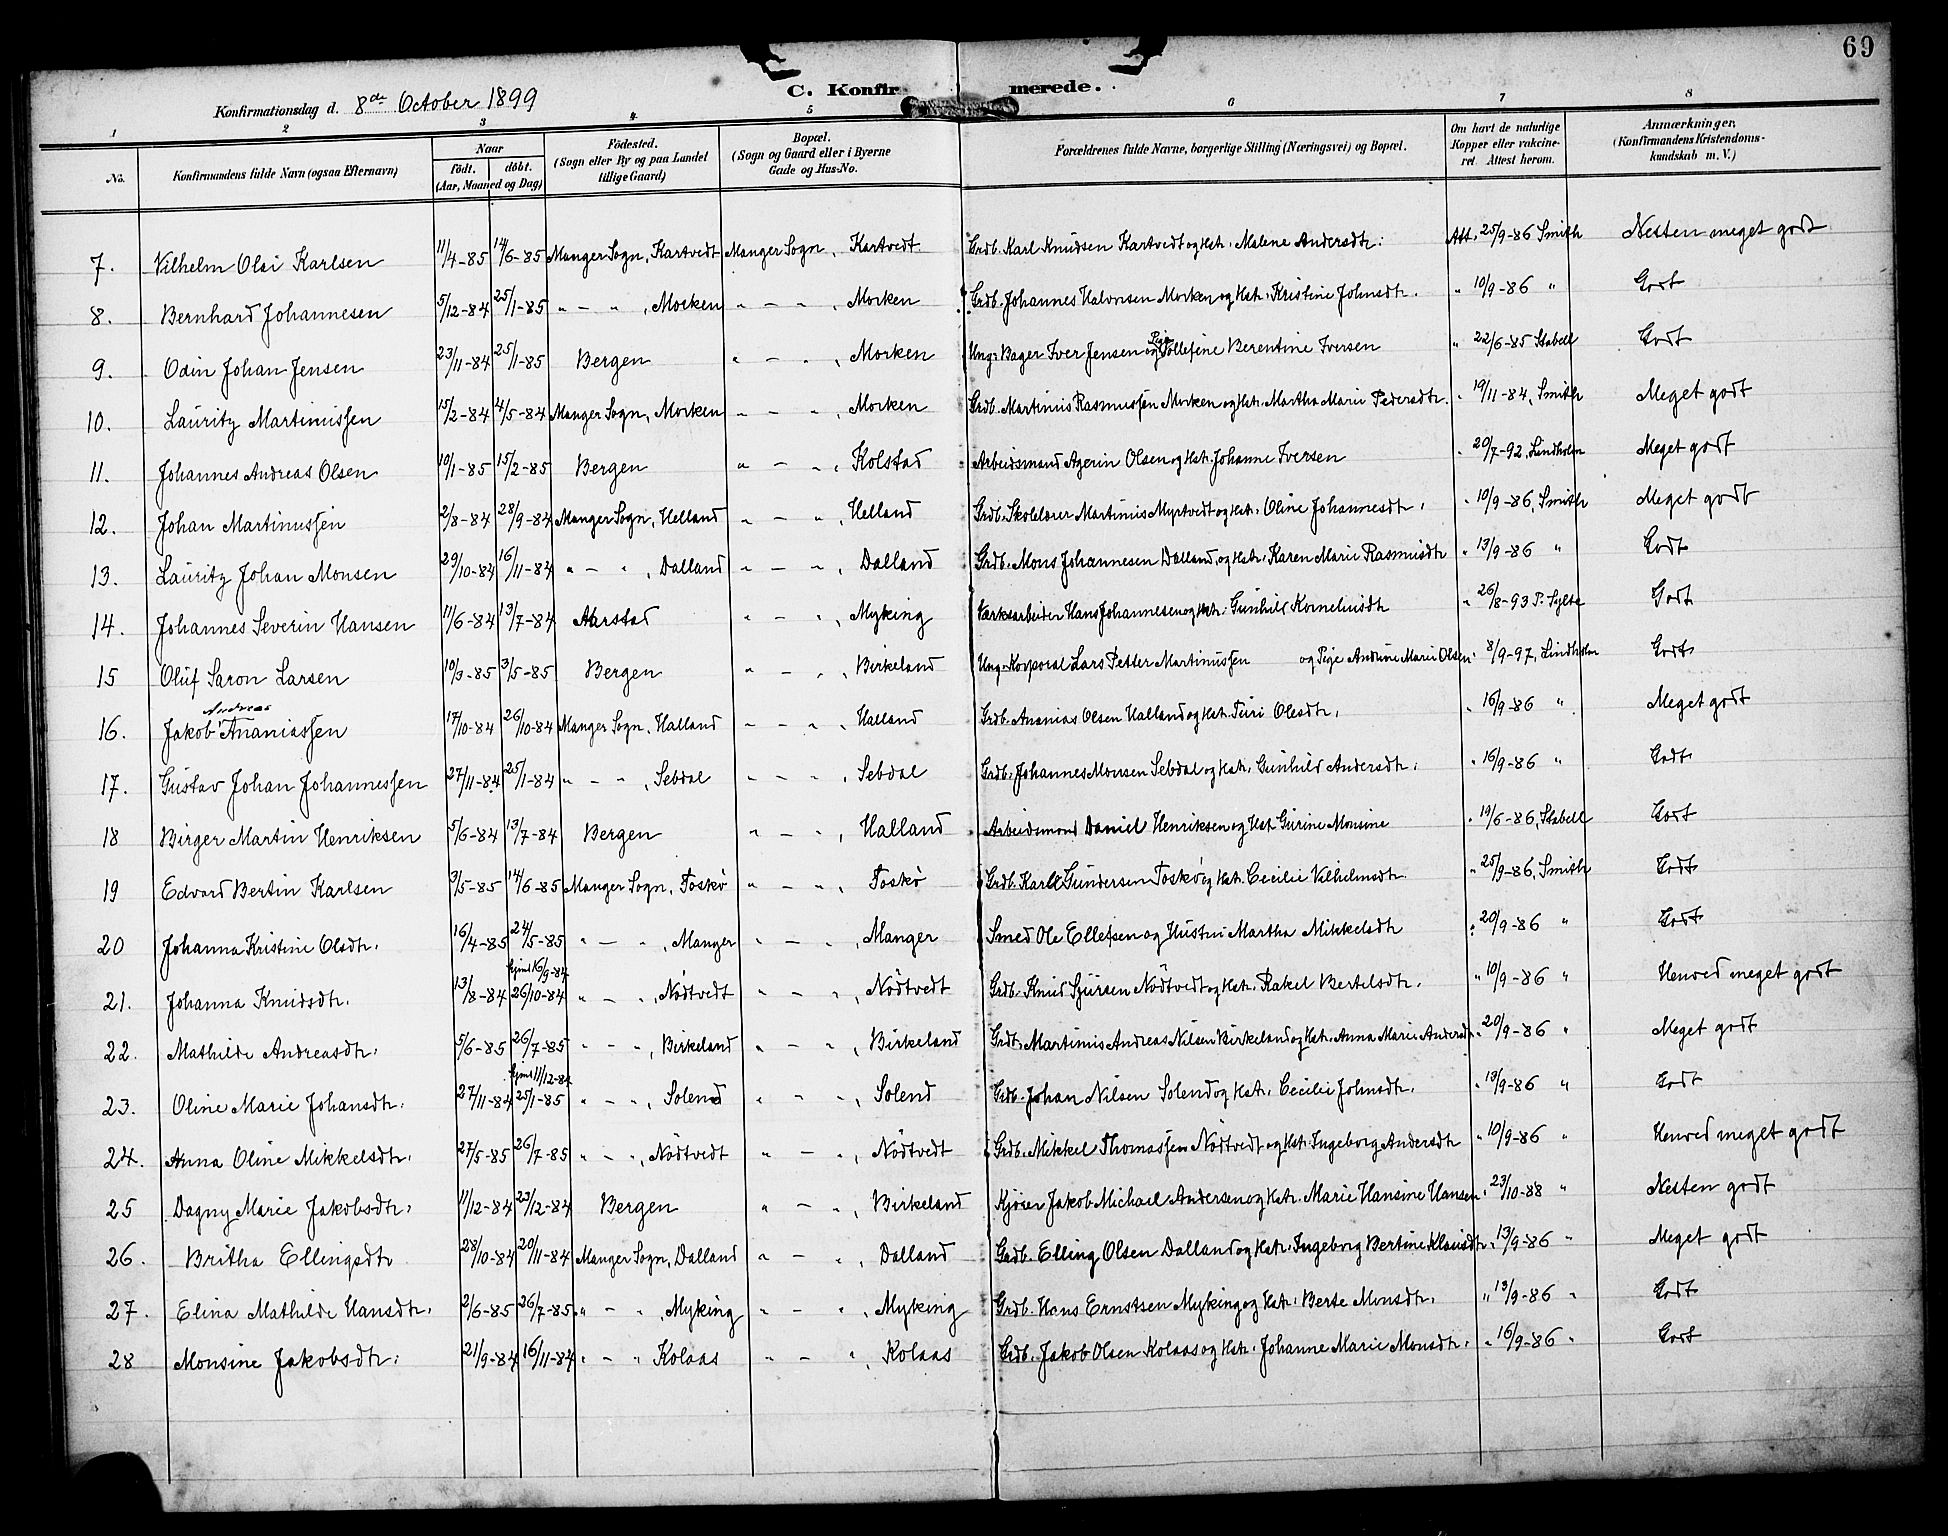 69
C. Konfirmerede.
Konfirmationsdag d. 8de October 1899
1 2 3 4 5 6 7 8
No. Konfirmandens fulde Navn (ogsaa Efternavn) Naar født. døbt. (Aar, Maaned og Dag) Födested. (Sogn eller By og paa Landet tillige Gaard) Bopæl. (Sogn og Gaard eller i Byerne Gade og Hus-No. Forældrenes fulde Navne, borgerlige Stilling (Næringsvei) og Bopæl. Om havt de naturlige Kopper eller vakcineret. Attest herom. Anmærkninger, (Konfirmandens Kristendomskundskab m. V.)
7. Vilhelm Olai Karlsen 11/4-85 14/6-85 Manger Sogn, Kartvedt Manger Sogn, Kartvedt Grdb. Karl Knudsen Kartvedt og Hstr. Malene Andersdtr. Att. 25/9-86 Smith Nesten meget godt
8. Bernhard Johannesen 5/12-84 25/1-85 " - " , Morken " - " , Morken Grdb. Johannes Halvorsen Morken og Hstr. Kristine Johnsdtr. " 10/9-86 " Godt
9. Odin Johan Jensen 23/11-84 25/1-85 Bergen " - " , Morken Ung. Bager Iver Jensen og Pige Tollefine Berentine Iversen " 22/6-85 Stabell Godt
10. Lauritz Martinussen 15/2-84 4/5-84 Manger Sogn, Morken " - " , Morken Grdb. Martinus Rasmussen Morken og Hstr. Martha Marie Pedersdtr. " 19/11-84, Smith Meget godt
11. Johannes Andreas Olsen 10/1-85 15/2-85 Bergen " - " , Kolstad Arbeidsmand Agerin Olsen og Hstr. Johanne Iversen " 20/7-92, Lindholm Meget godt
12. Johan Martinussen 2/8-84 28/9-84 Manger Sogn, Helland " - " , Helland Grdb. Skolelærer Martinus Myrtvedt og Hstr. Oline Johannesdtr. " 10/9-86, Smith Meget godt
13. Lauritz Johan Monsen 29/10-84 16/11-84 " - " , Dalland " - " , Dalland Grdb. Mons Johannesen Dalland og Hstr. Karen Marie Rasmusdtr " 13/9-86 " Godt
14. Johannes Severin Hansen 11/6-84 13/7-84 Aarstad " - " , Myking Værksarbeider Hans Johannesen og Hstr. Gunhild Korneliusdtr " 26/8-93 P. Sylte Godt
15 Oluf Saron Larsen 10/3-85 3/5-85 Bergen " - " , Birkeland Ung. Korporal Lars Petter Martinussen og Pige Andrine Marie Olsen. " 8/9-97, Lindholm Godt
16. Jakob Andreas Ananiassen 17/10-84 26/10-84 Manger Sogn, Halland " - " , Halland Grdb. Ananias Olsen Halland og Hstr. Siri Olesdtr. " 16/9-86 " Meget godt
17. Gustav Johan Johannessen 27/11-84 25/1-84 " - " , Sebdal " - " , Sebdal Grdb. Johannes Monsen Sebdal og Hstr. Gunhild Andersdtr. " 16/9-86 " Godt
18 Birger Martin Henriksen 5/6-84 13/7-84 Bergen " - " , Halland Arbeidsmand Daniel Henriksen og Hst. Gurine Monsine " 19/6-86, Stabell Godt
19 Edvard Bertin Karlsen 3/5-85 14/6-85 Manger Sogn, Toskø " - " , Toskø Grdb. Karl Gundersen Toskø og Hst. Cecilie Vilhelmsdtr. " 25/9-86, Smith Godt
20 Johanna Kristine Olsdtr. 16/4-85 24/5-85 " - " , Manger " - " , Manger Smed Ole Ellefsen og Hustru Martha Mikkelsdtr " 20/9-86 " Godt
21. Johanna Knudsdtr. 13/8-84 hjmd 16/9-84 26/10-84 " - " , Nödtvedt " - " , Nödtvedt Grdb. Knud Sjursen Nödtvedt og Hstr. Rakel Bertelsdtr. " 10/9-86 " Henved meget godt
22. Mathilde Andreasdtr. 5/6-85 26/7-85 " - " , Birkeland " - " , Birkeland Grdb. Martinus Andreas Nilsen Birkeland og Hstr. Anna Marie Andersdtr " 20/9-86 " Meget godt
23. Oline Marie Johansdtr. 27/11-84 hjmd 11/12-84 25/1-85 " - " , Solend " - " , Solend Grdb. Johan Nilsen Solend og Hstr. Cecilie Johnsdtr. " 13/9-86 " Godt
24. Anna Oline Mikkelsdtr. 27/5-85 26/7-85 " - " , Nödtvedt " - " , Nödtvedt Grdb. Mikkel Thomassen Nödtvedt og Hstr. Ingeborg Andersdtr " 10/9-86 " Henved meget godt
25 Dagny Marie Jakobsdtr. 11/12-84 23/12-84 Bergen " - " , Birkeland Kjører Jakob Michael Andersen og Hstr. Marie Hansine Hansen " 23/10-88 " Nesten godt
26. Britha Ellingsdtr 28/10-84 20/11-84 Manger Sogn, Dalland " - " , Dalland Grdb. Elling Olsen Dalland og Hstr. Ingeborg Bertine Klausdtr " 13/9-86 " Meget godt
27. Elina Mathilde Hansdtr. 2/6-85 26/7-85 " - " , Myking " - " , Myking Grdb. Hans Ernstsen Myking og Hstr. Berte Monsdtr. " 13/9-86 " Godt
28 Monsine Jakobsdtr. 21/9-84 16/11-84 " - " Kolaas " - " , Kolaas Grdb. Jakob Olsen Kolaas og Hstr. Johanne Marie Monsdtr. " 16/9-86 " Godt